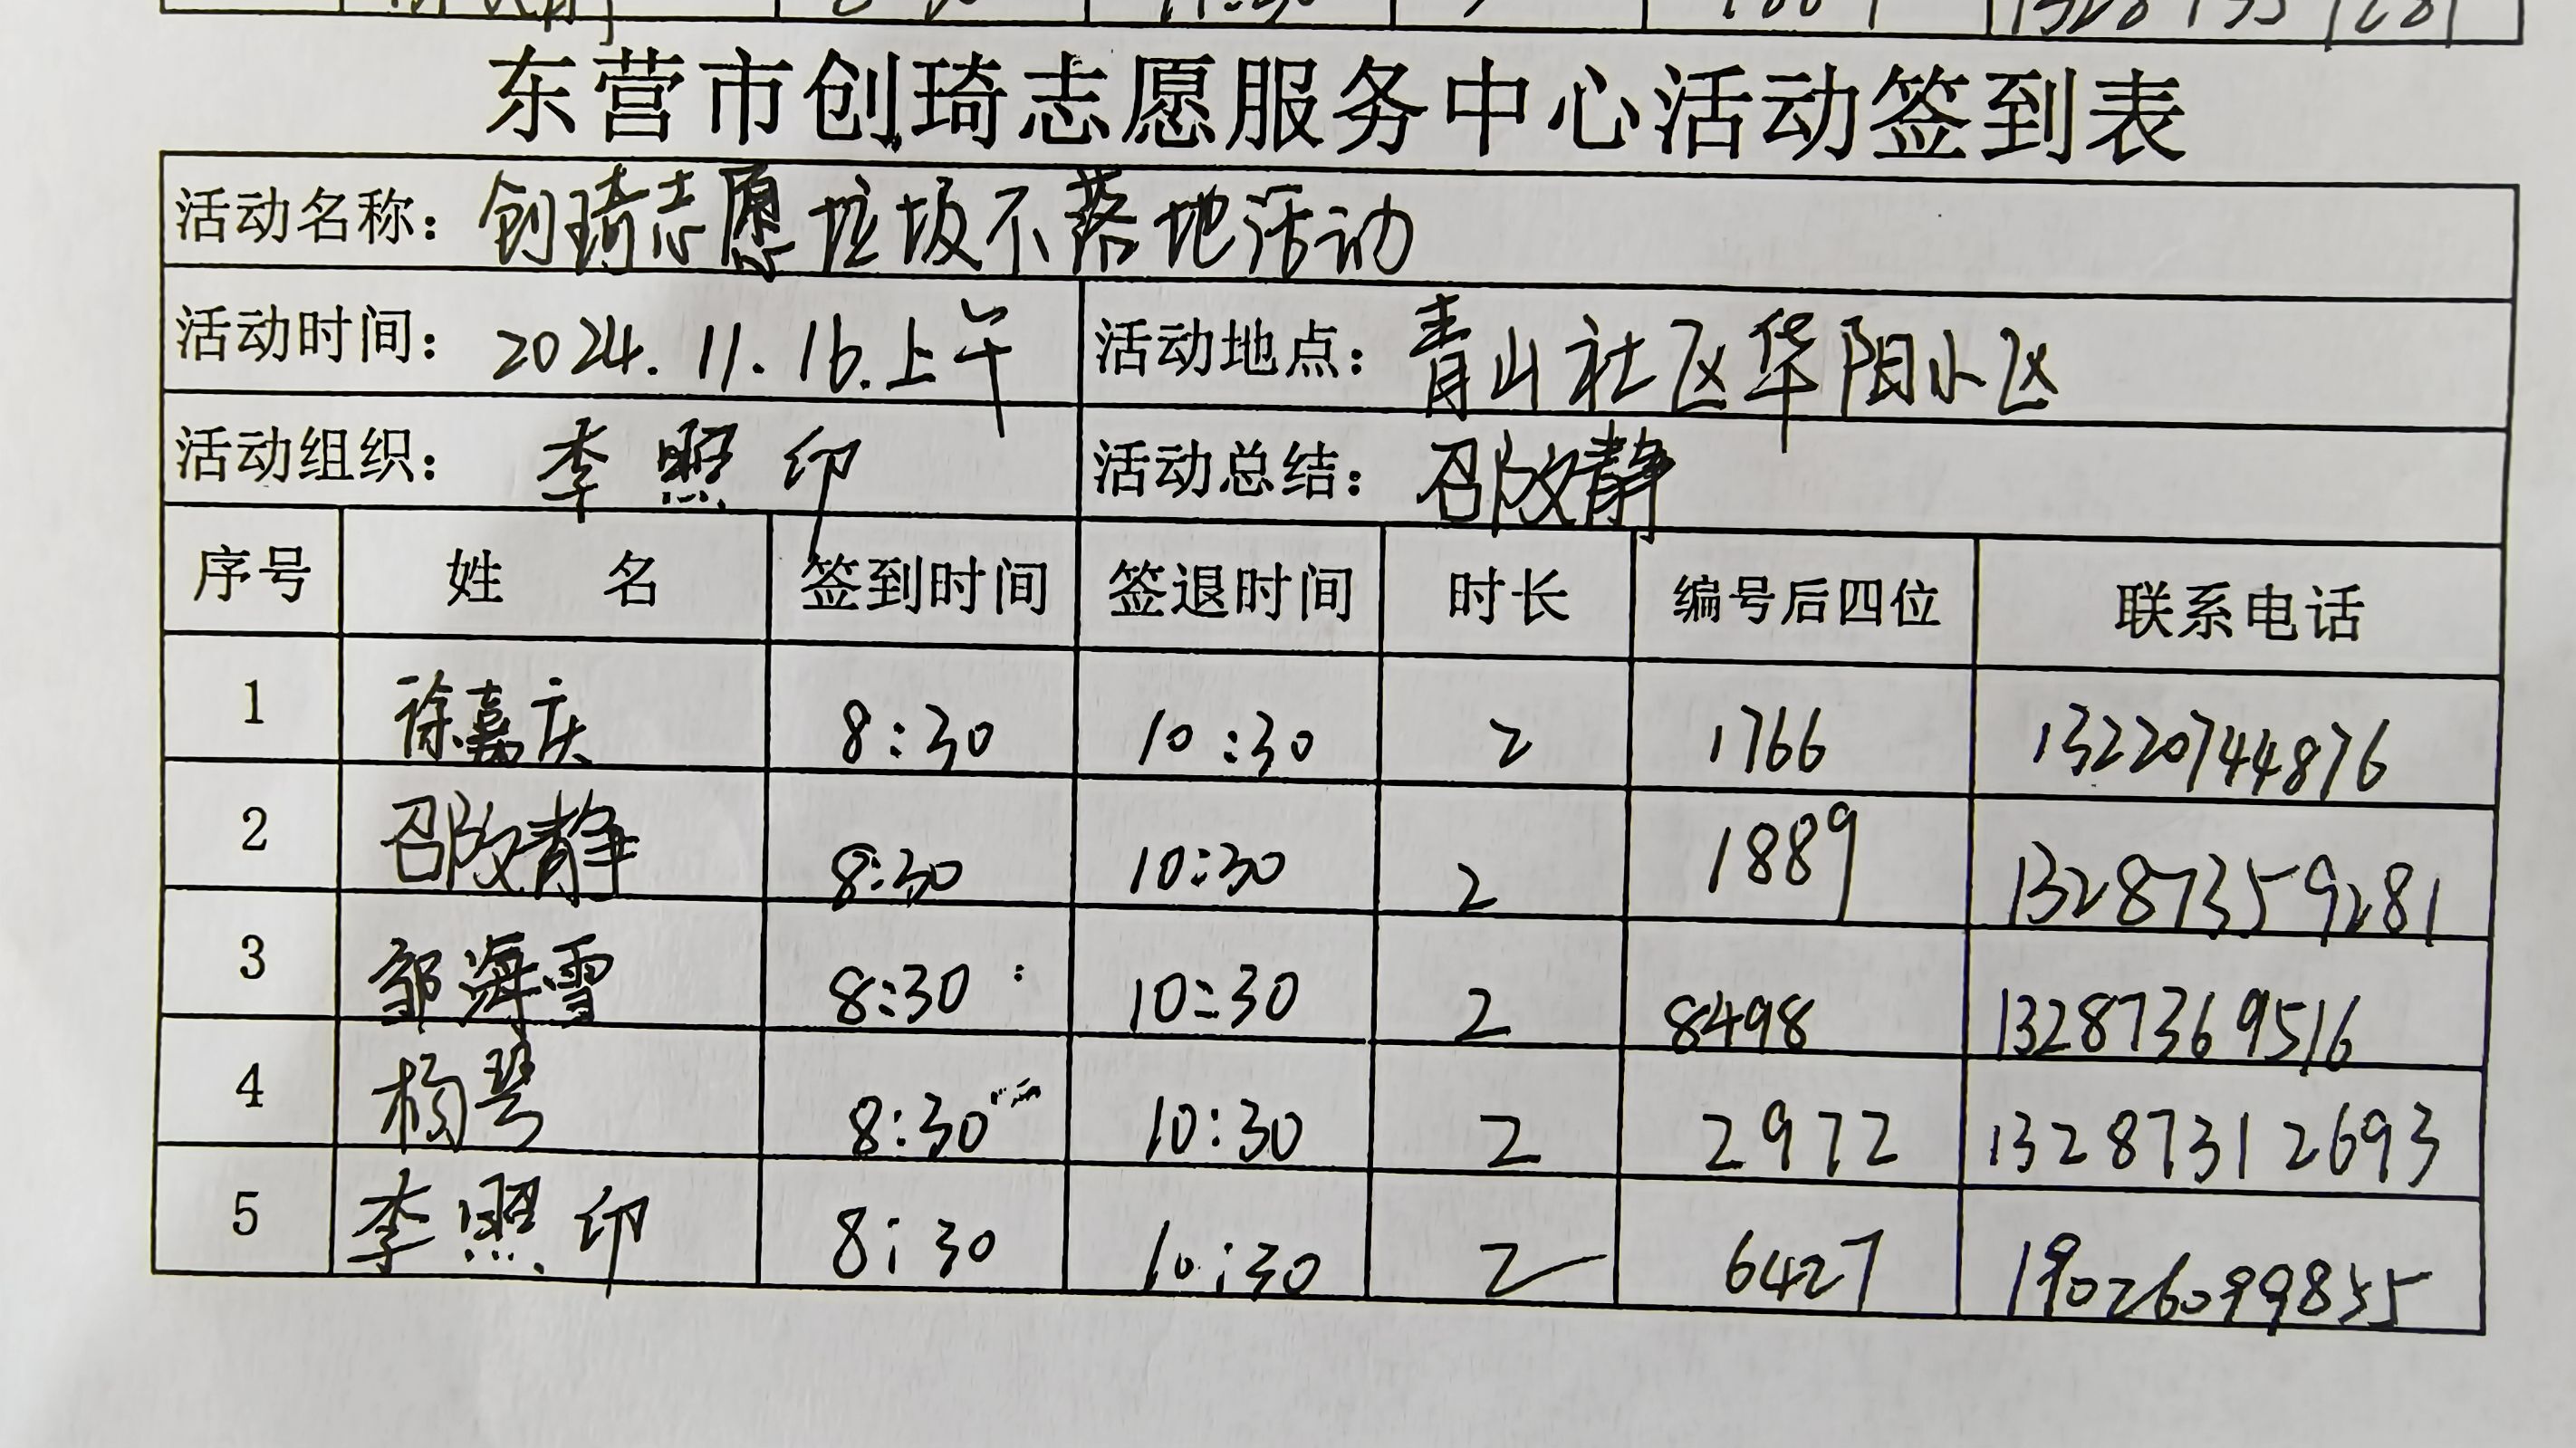 东营市创琦志愿服务中心活动签到表
活动名称：创琦志愿垃圾不落地活动
活动时间：2024.11.16.上午 活动地点：青山社区华阳小区
活动组织：李照印 活动总结：邵政静
序号 姓 名 签到时间 签退时间 时长 编号后四位 联系电话
1 徐嘉庆 8:30 10:30 2 1766 13220744876
2 8:30 10:30 2 1889 13287359281
3 邹海雪 8:30 10:30 2 8498 13287369516
4 杨琴 8:30 10:30 2 2972 13287312693
5 李照印 8:30 10:30 2 6427 19026099855